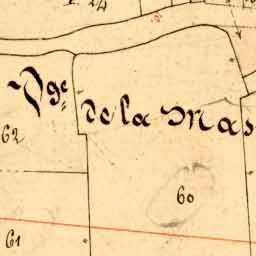 P. 24
Vge. de la Mas
62
60
61